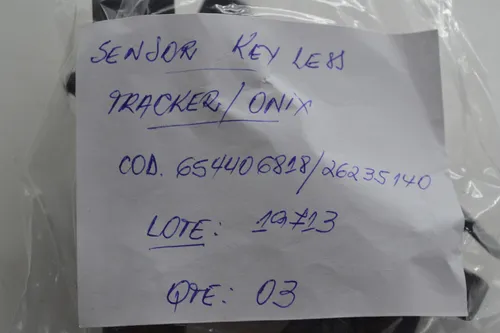 SENSOR KEY LESS
TRACKER/ONIX
COD. 654406818/26235140
LOTE: 19713
QTE: 03